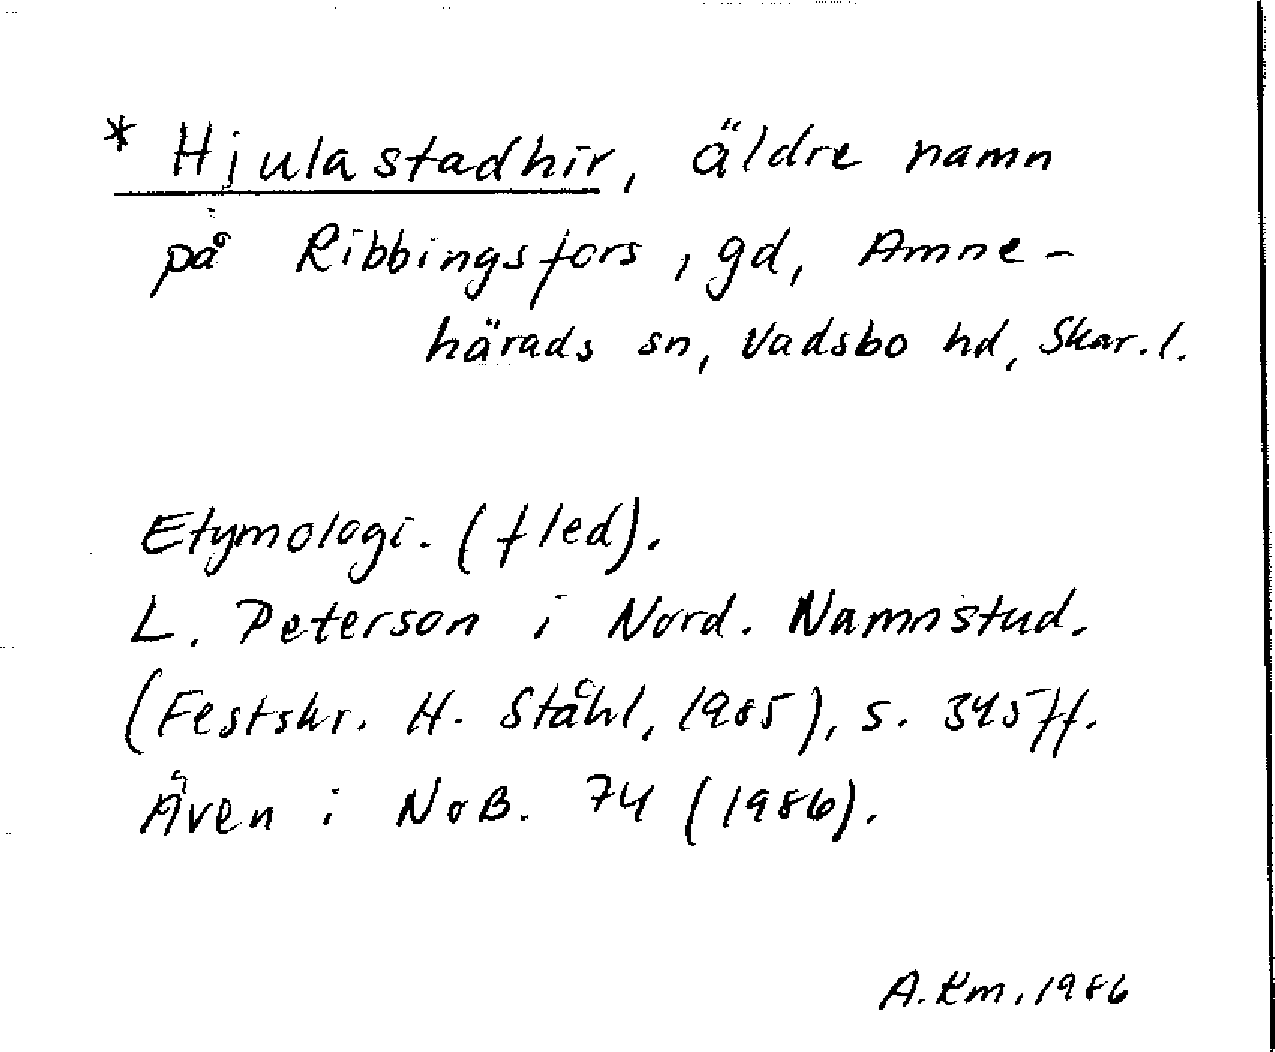 * Hjulastadhir, äldre namn
på Ribbingsfors, gd, Amne-
härads sn, Vadsbo hd, Skar. l.
Etymologi. (f led).
L. Peterson i Nord. Namnstud.
(Festskr. H. Ståhl, 1985), s. 345 ff.
Även i NoB. 74 (1986).
A. Km. 1986